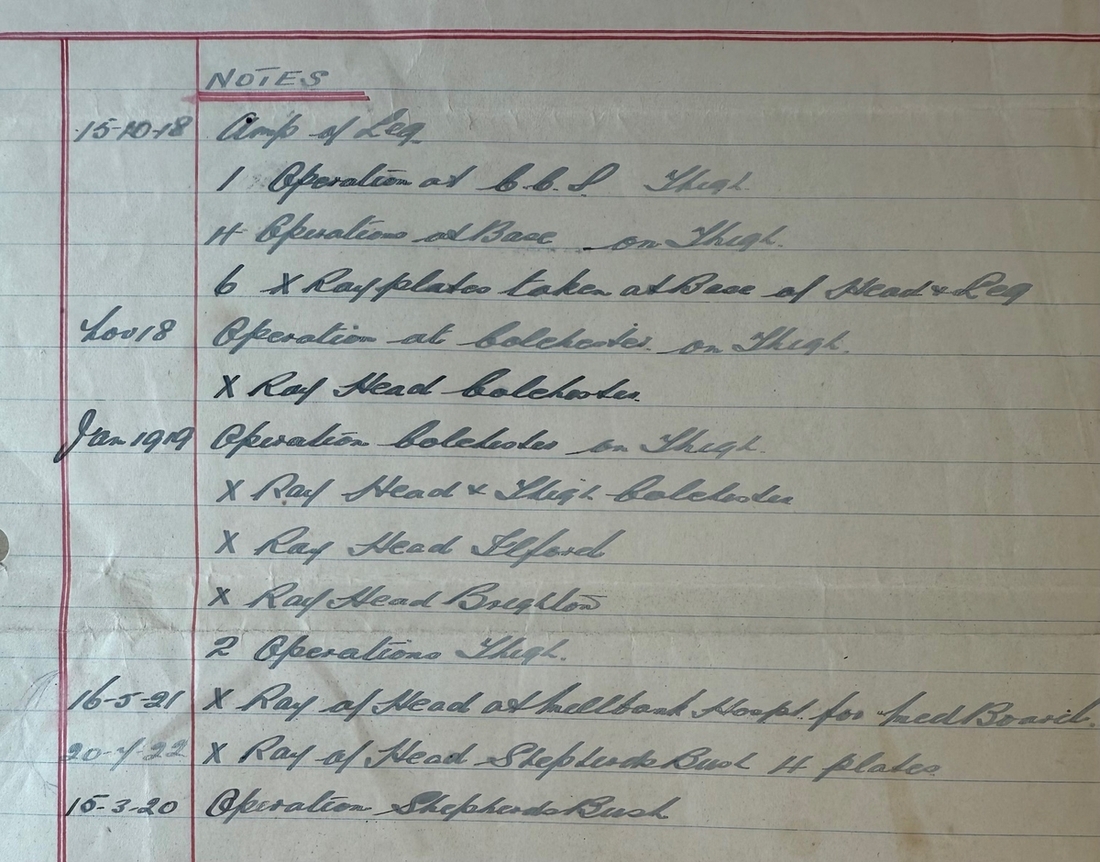 NOTES
15-10-18 Amp of Leg
1 Operation at C.C.S. Thigh
4 Operations at Base on Thigh.
6 X Ray plates taken at Base of Head & Leg
Nov 18 Operation at Colchester. on Thigh.
X Ray Head Colchester.
Jan 1919 Operation Colchester on Thigh.
X Ray Head & Thigh Colchester
X Ray Head Ilford
X Ray Head Brighton
2 Operations Thigh.
16-5-21 X Ray of Head at Millbank Hospl. for Med Board.
X Ray of Head Shepherds Bush 4 plates
15-3-20 Operation Shepherds Bush